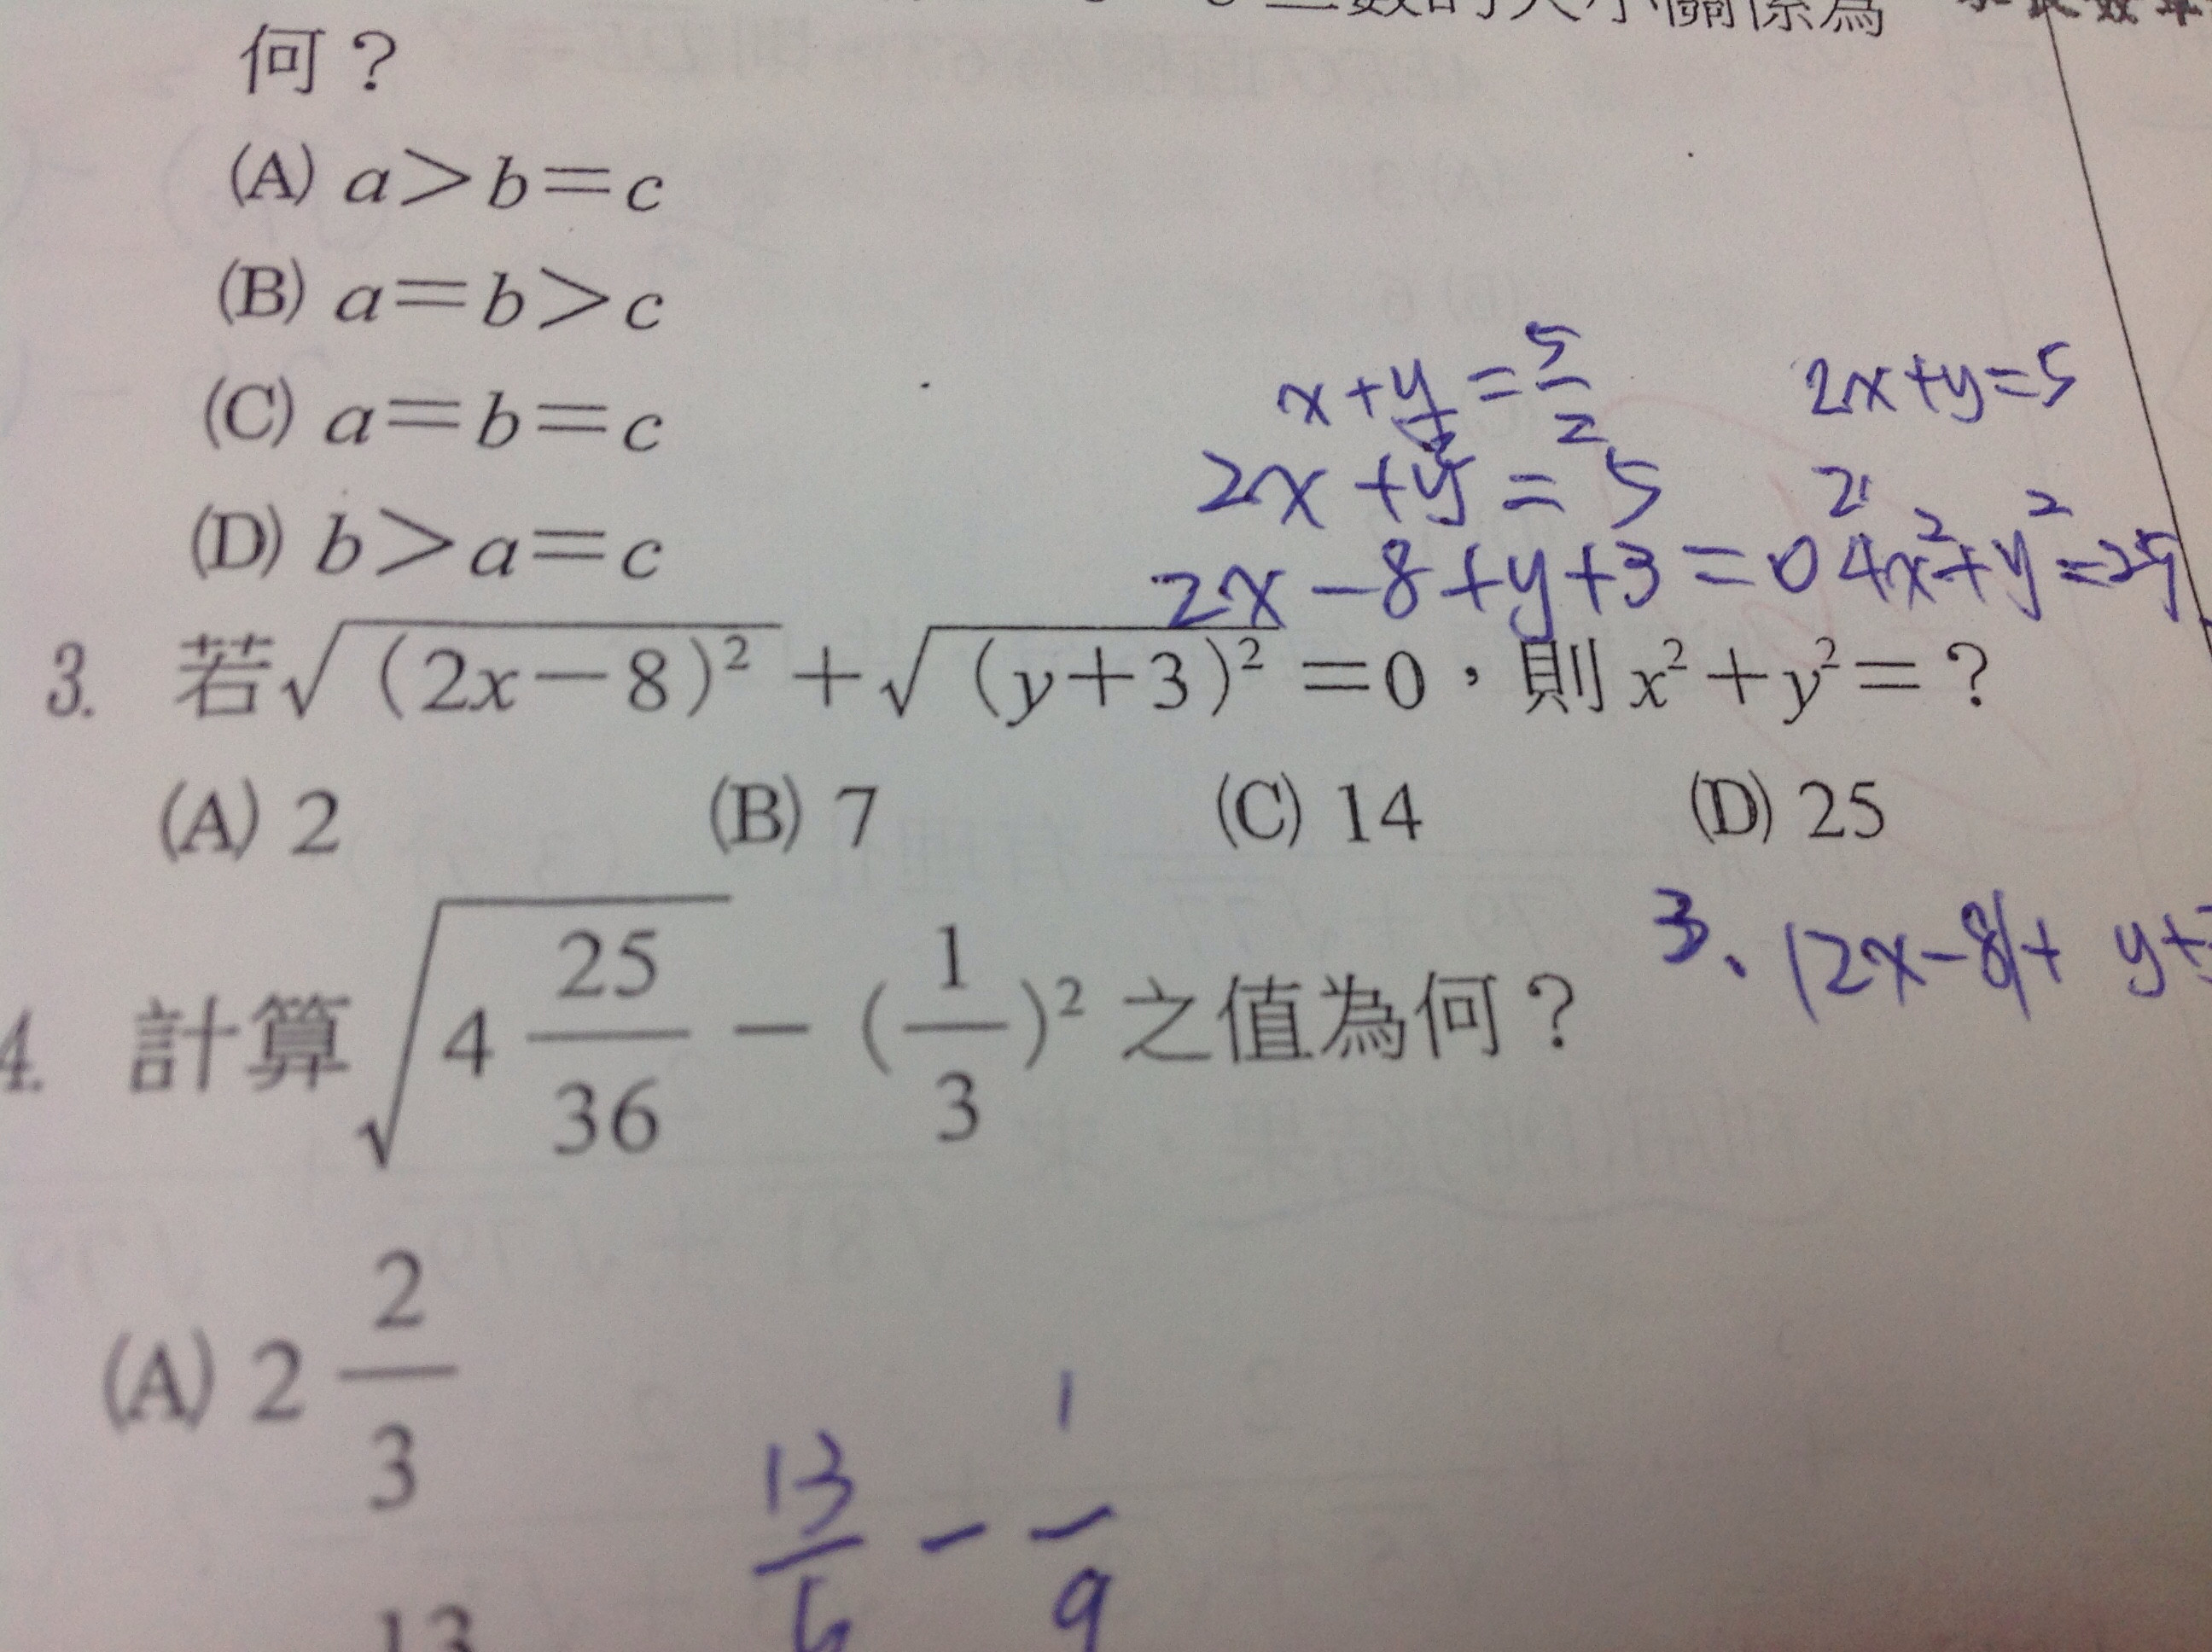 數的大小關係為
何？
(A) a＞b＝c
(B) a＝b＞c
(C) a＝b＝c
(D) b＞a＝c
x+y/2=5/2
2x+y=5
2x+y=5
2x-8+y+3=0
4x²+y²=25
3. 若√(2x－8)²＋√(y＋3)²＝0，則 x²＋y²＝？
(A) 2 (B) 7 (C) 14 (D) 25
3. |2x-8|+ y+
4. 計算√4 25/36－(1/3)² 之值為何？
(A) 2 2/3
13/6 - 1/9
13